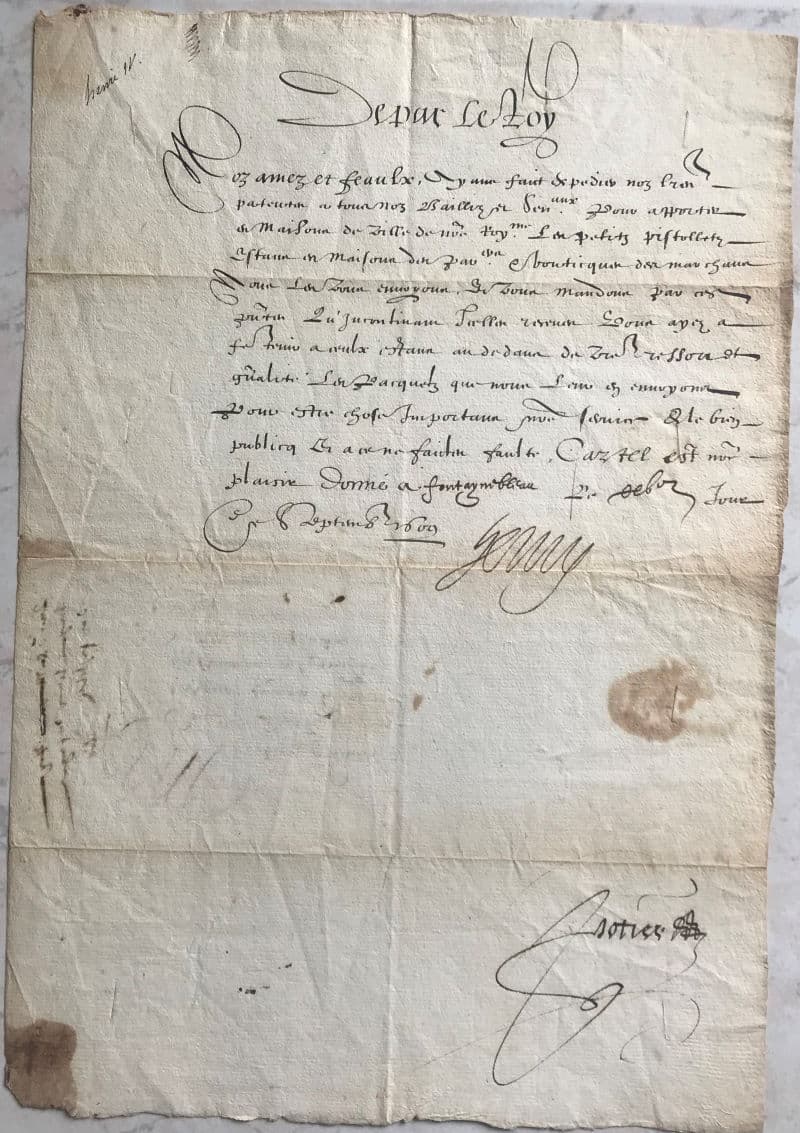 henri IV.
De par Le Roy
Noz amez et feaulx, Ayans fait depescher noz lres
patentes a tous noz Bailliz et Sen.aux Pour apporter
es Maisons de Ville de nre Roy.me Les petitz pistolletz
Estans es Maisons des par.ers & bouticques des marchans
Nous Les vous envoyons, Et vous mandons par ces
pntes Qu'Incontinant Icelles receues Vous ayez a
fe tenir a ceulx estans au dedans de vre ressort et
gnalité Les Pacquetz que nous Leur en envoyons
Pour estre chose Importans nre service & le bien
publicq Et a ce ne faictes faulte, Car tel est nre
plaisir Donné a fontaynebleau Le Jour
de Septembre 1609
Henry
Potier